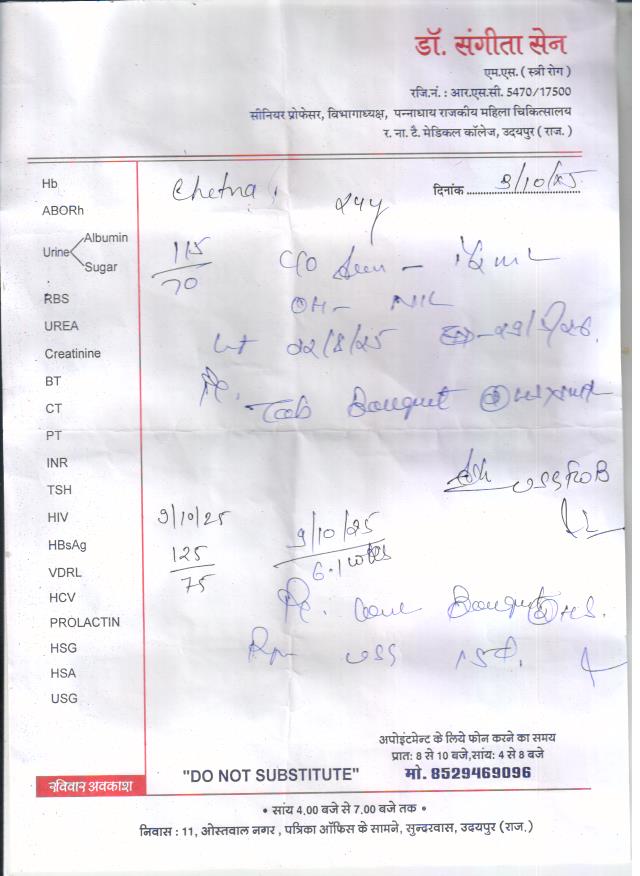 डॉ. संगीता सेन
एम.एस. ( स्त्री रोग )
रजि.नं. : आर.एस.सी. 5470/17500
सीनियर प्रोफेसर, विभागाध्यक्ष, पन्नाधाय राजकीय महिला चिकित्सालय
र. ना. टै. मेडिकल कॉलेज, उदयपुर ( राज. )
Hb
Chetna
दिनांक 3/10/25
ABORh
Urine Albumin Sugar
115/70
C/O
OH - NIL
RBS
UREA
22/8/25
Creatinine
BT
Tab Bouquet
CT
PT
INR
TSH
HIV
9/10/25
9/10/25
HBsAg
125/75
6.1 wks
VDRL
HCV
Bouquet
PROLACTIN
HSG
USG
HSA
USG
अपोइंटमेन्ट के लिये फोन करने का समय
प्रात: 8 से 10 बजे,सांय: 4 से 8 बजे
रविवार अवकाश
"DO NOT SUBSTITUTE"
मो. 8529469096
• सांय 4.00 बजे से 7.00 बजे तक •
निवास : 11, ओस्तवाल नगर , पत्रिका ऑफिस के सामने, सुन्दरवास, उदयपुर (राज.)